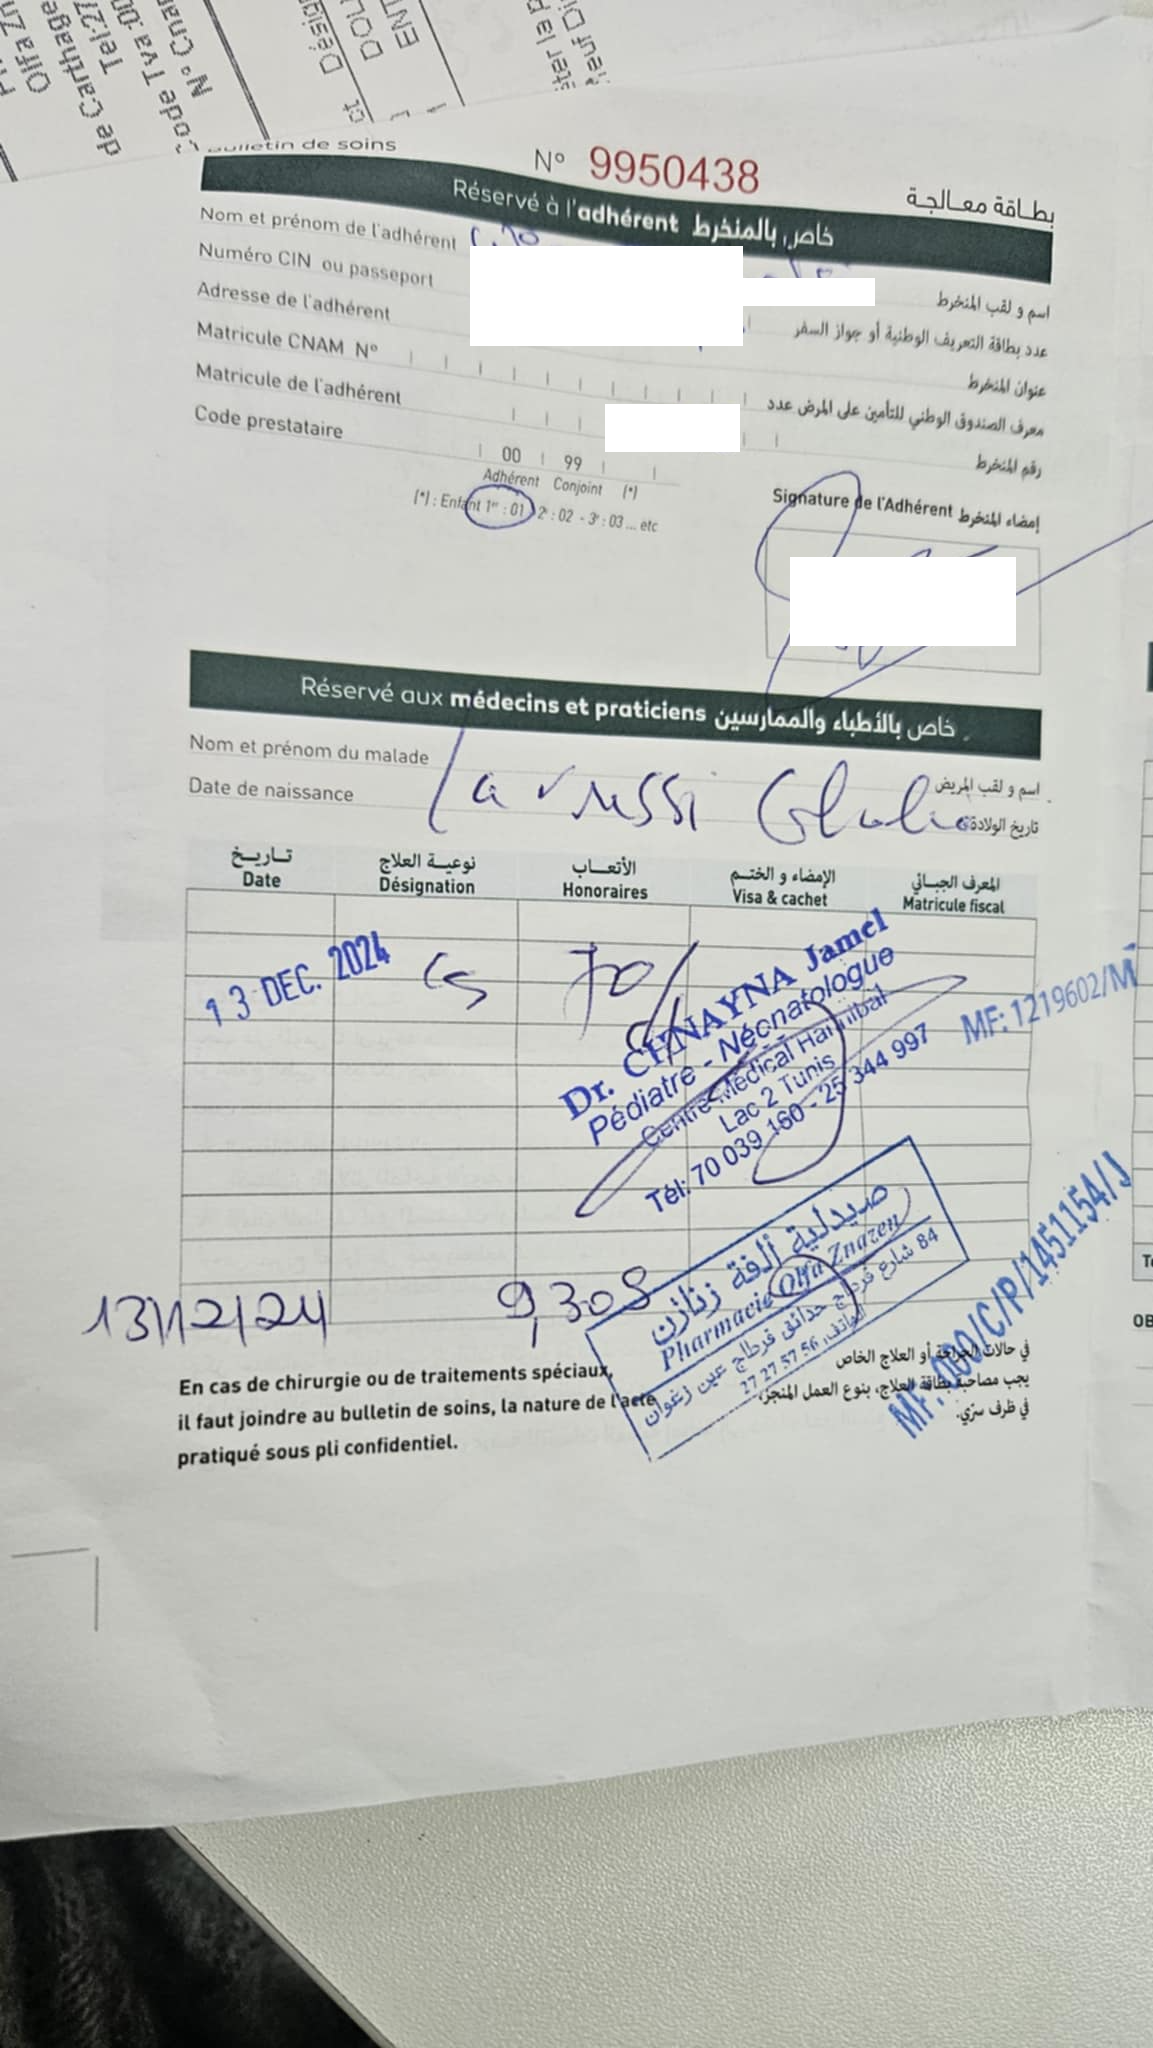 N° Cnam
Code Tva :00
Tel:27
de Carthage
Olfa Zn
Désig
DOL
EN
ter la p
auf Di
Bulletin de soins
N° 9950438
بطاقة معالجة
Réservé à l'adhérent خاص بالمنخرط
Nom et prénom de l'adhérent
اسم و لقب المنخرط
Numéro CIN ou passeport
عدد بطاقة التعريف الوطنية أو جواز السفر
Adresse de l'adhérent
عنوان المنخرط
Matricule CNAM N°
معرف الصندوق الوطني للتأمين على المرض عدد
Matricule de l'adhérent
رقم المنخرط
Code prestataire
00 99
Adhérent Conjoint (*)
(*) : Enfant 1er : 01 - 2e : 02 - 3e : 03 ... etc
Signature de l'Adhérent إمضاء المنخرط
Réservé aux médecins et praticiens خاص بالأطباء والممارسين
Nom et prénom du malade
اسم و لقب المريض
Date de naissance
تاريخ الولادة
تاريخ نوعية العلاج الأتعاب الإمضاء و الختم المعرف الجبائي
Date Désignation Honoraires Visa & cachet Matricule fiscal
13 DEC. 2024 Cs 70/
Dr. CHNAYNA Jamel
Pédiatre - Néonatologue
Centre Médical Hannibal
Lac 2 Tunis
Tél: 70 039 160 - 25 344 997
MF: 1219602/M
صيدلية ألفة زنازن
Pharmacie Olfa Znazen
84 شارع قرطاج حدائق قرطاج عين زغوان
الهاتف: 27 27 57 56
MF:000/C/P/1451154/J
13/12/24 9,308
En cas de chirurgie ou de traitements spéciaux,
il faut joindre au bulletin de soins, la nature de l'acte
pratiqué sous pli confidentiel.
في حالات الجراحة أو العلاج الخاص
يجب مصاحبة بطاقة العلاج، بنوع العمل المنجز،
في ظرف سرّي.
OB